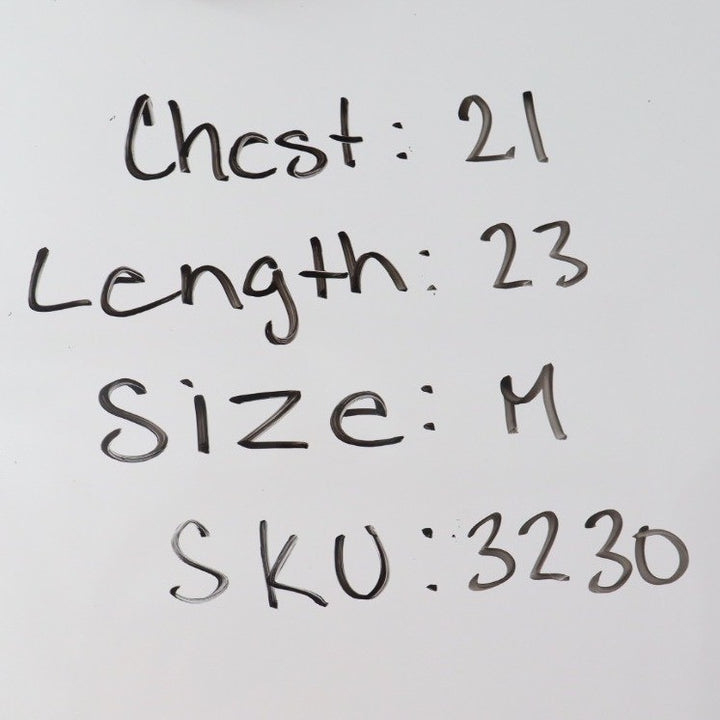 Chest: 21
Length: 23
Size: M
SKU: 3230